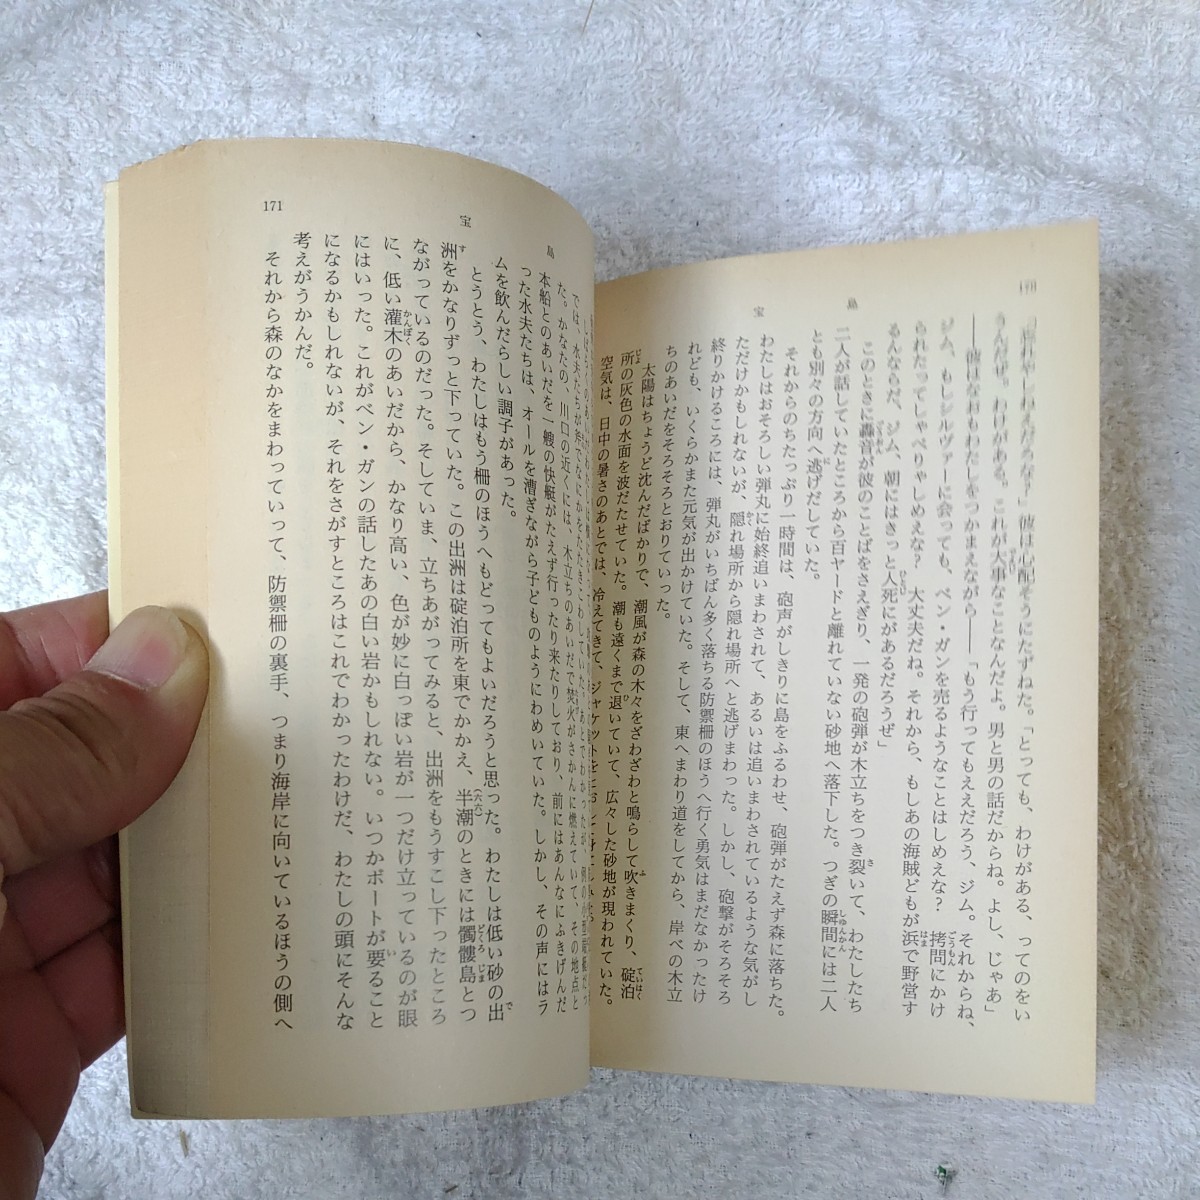 170
宝島
「忘れやしねえだろうな?」彼は心配そうにたずねた。「とっても、わけがある、ってのをい
うんだぜ。わけがある。これが大事なことなんだよ。男と男の話だからね。よし、じゃあ」
――彼はなおもわたしをつかまえながら――「もう行ってもええだろう、ジム。それからね、
ジム、もしジルヴァーに会っても、ベン・ガンを売るようなことはしめえな? 拷問にかけ
られたってしゃべりゃしめえな? 大丈夫だね。それから、もしあの海賊どもが浜で野営す
るんならだ、ジム、朝にはきっと人死にがあるだろうぜ」
このときに轟音が彼のことばをさえぎり、一発の砲弾が木立をつき裂いて、わたしたち
二人が話していたところから百ヤードと離れていない砂地へ落下した。つぎの瞬間には二人
とも別々の方向へ逃げだしていた。
それからのちたっぷり一時間は、砲声がしきりに島をふるわせ、砲弾がたえず森に落ちた。
わたしはおそろしい弾丸に始終追いまわされて、あるいは追いまわされているような気がし
ただけかもしれないが、隠れ場所から隠れ場所へと逃げまわった。しかし、砲撃がそろそろ
終りかけるころには、弾丸がいちばん多く落ちる防禦柵のほうへ行く勇気はまだなかったけ
れども、いくらかまた元気が出かけていた。そして、東へまわり道をしてから、岸べの木立
ちのあいだをそろそろとおりていった。
太陽はちょうど沈んだばかりで、潮風が森の木々をざわざわと鳴らして吹きまくり、碇泊
所の灰色の水面を波だたせていた。潮も遠くまで退いていて、広々した砂地が現われていた。
空気は、日中の暑さのあとでは、冷えてきて、ジャケットをとおして身に
171
宝島
では、水夫たちが斧でなにかをたたきこわしていた。あとでわかったが、例の小型
た。かなたの、川口の近くには、木立ちのあいだで焚火がさかんに燃えていて、その地点と
本船とのあいだを一艘の快艇がたえず行ったり来たりしており、前にはあんなにふきげんだ
った水夫たちは、オールを漕ぎながら子どものようにわめいていた。しかし、その声にはラ
ムを飲んだらしい調子があった。
とうとう、わたしはもう柵のほうへもどってもよいだろうと思った。わたしは低い砂の出
洲をかなりずっと下っていた。この出洲は碇泊所を東でかかえ、半潮のときには髑髏島とつ
ながっているのだった。そしていま、立ちあがってみると、出洲をもうすこし下ったところ
に、低い灌木のあいだから、かなり高い、色が妙に白っぽい岩が一つだけ立っているのが眼
にはいった。これがベン・ガンの話したあの白い岩かもしれない。いつかボートが要ること
になるかもしれないが、それをさがすところはこれでわかったわけだ、わたしの頭にそんな
考えがうかんだ。
それから森のなかをまわっていって、防禦柵の裏手、つまり海岸に向いているほうの側へ